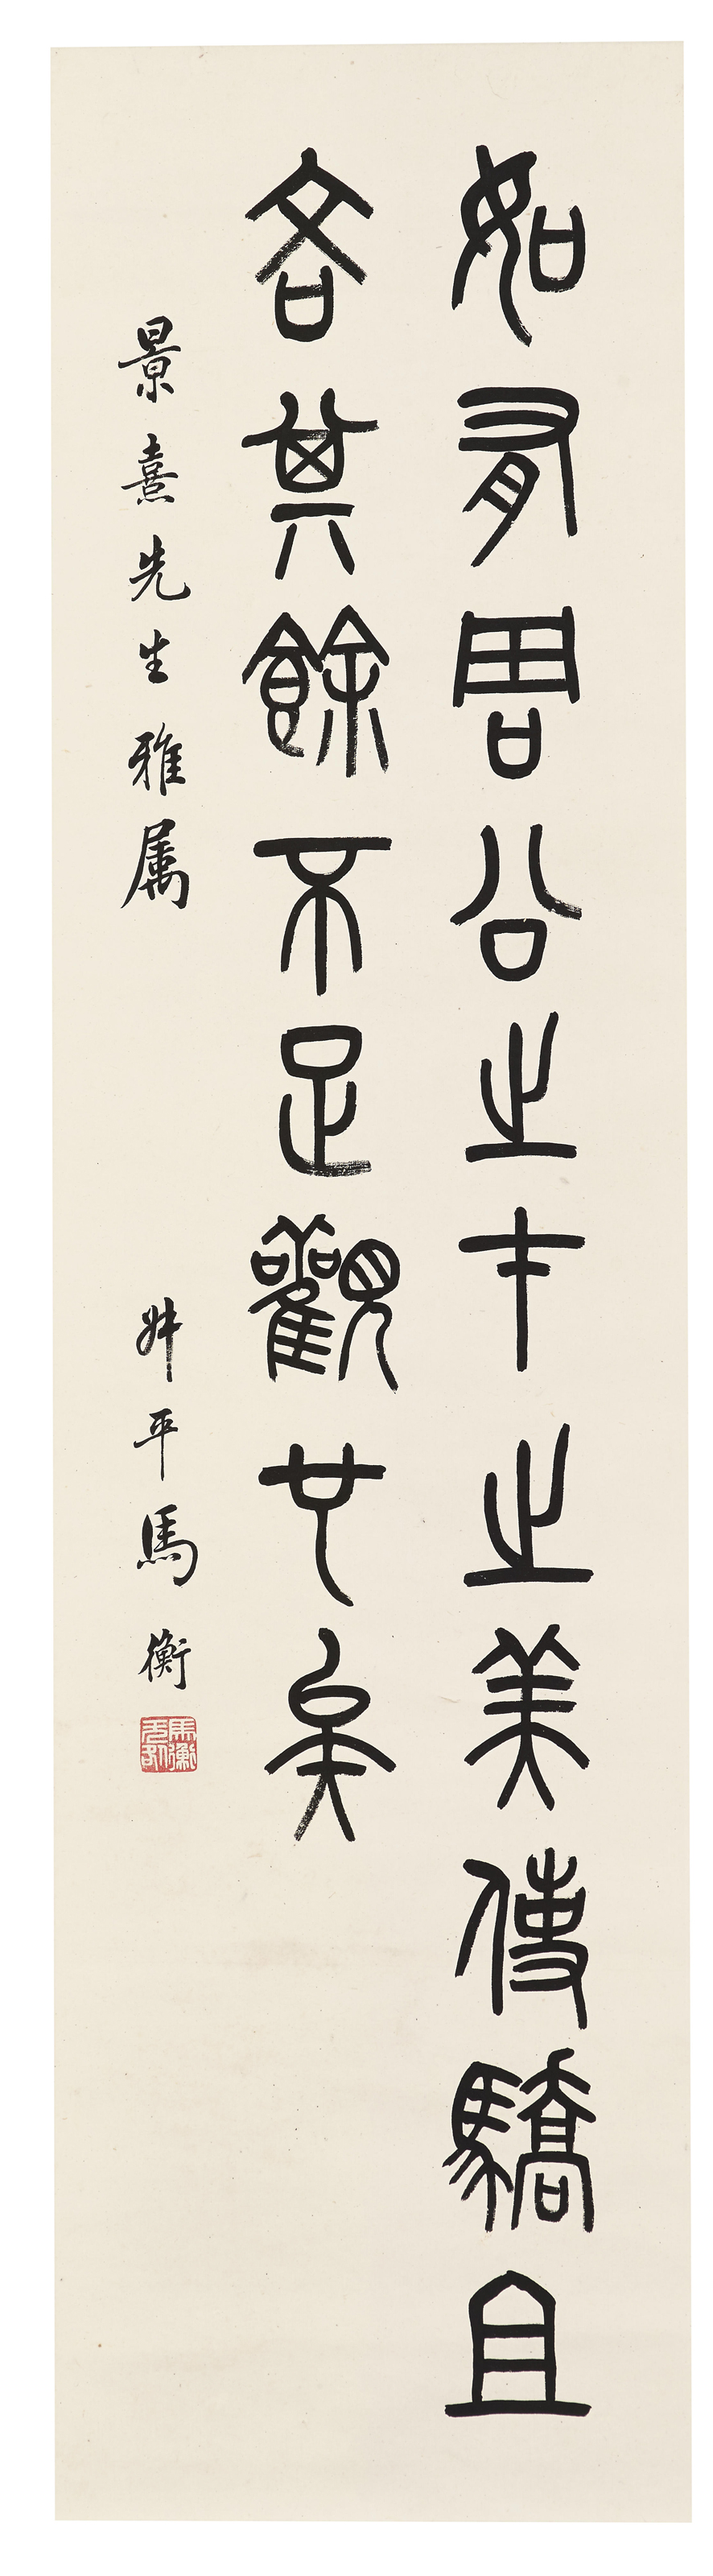 如有周公之才之美使驕且
吝其餘不足觀也矣
景熹先生雅属
叔平馬衡
馬衡